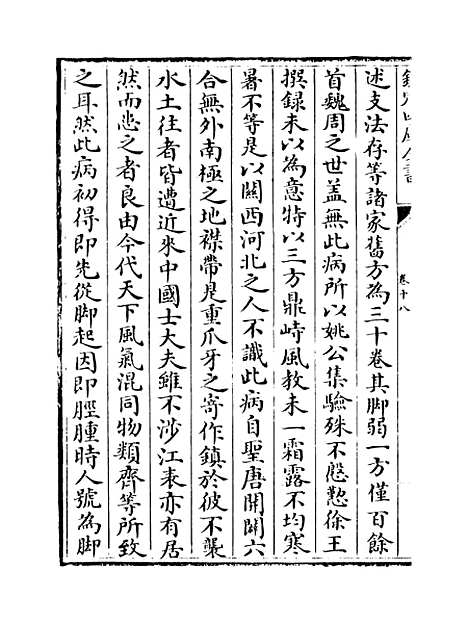 述支法存等諸家舊方為三十卷其脚弱一方僅百餘
首魏周之世盖無此病所以姚公集驗殊不慇懃徐王
撰録未以為意特以三方鼎峙風教未一霜露不均寒
暑不等是以關西河北之人不識此病自聖唐開闢六
合無外南極之地襟帶是重爪牙之寄作鎮於彼不襲
水土往者皆遭近來中國士大夫雖不涉江表亦有居
然而患之者良由今代天下風氣混同物類齊等所致
之耳然此病初得即先從脚起因即脛腫時人號為脚
卷十八